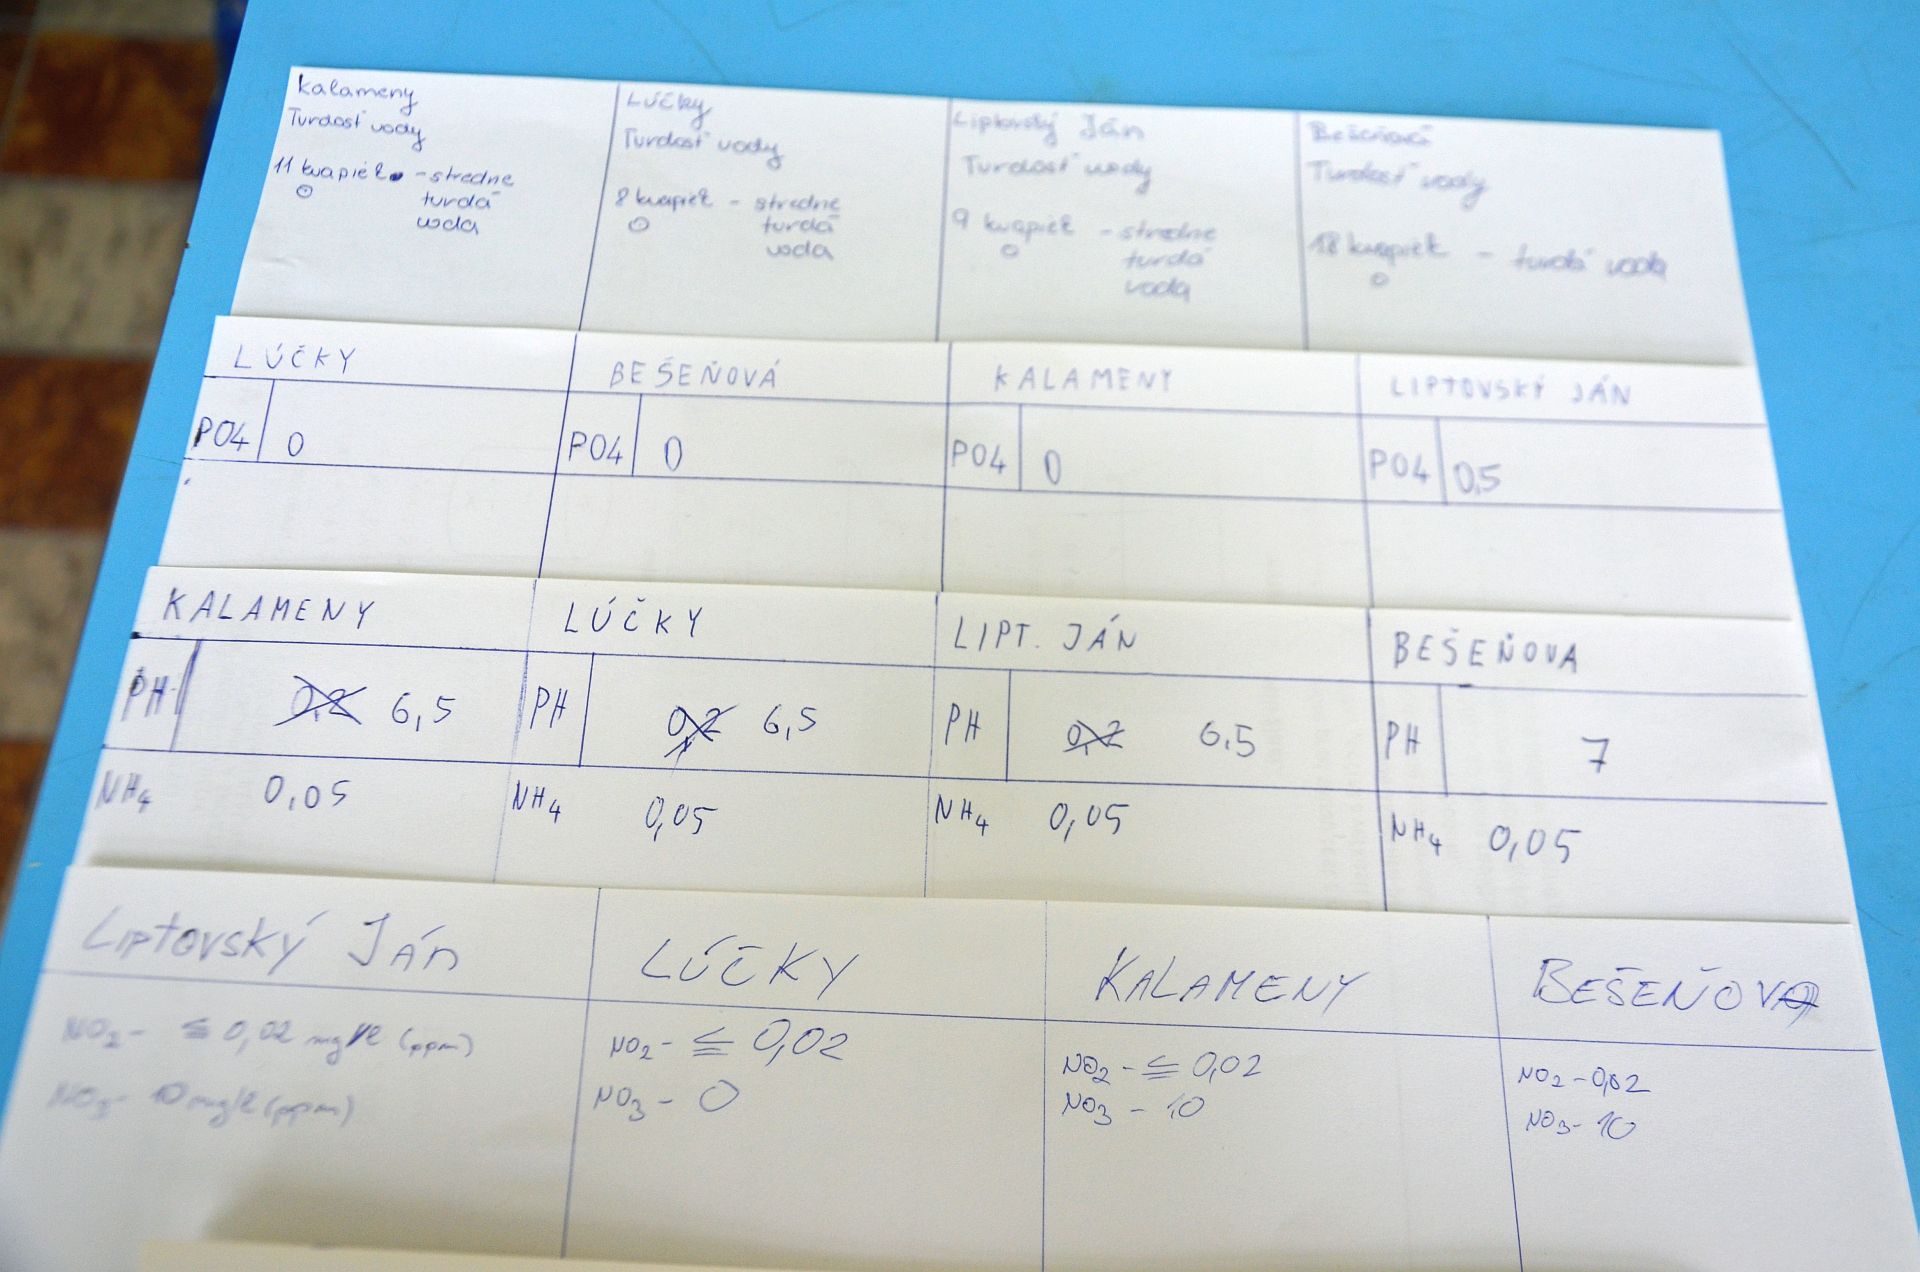 Kalameny
Tvrdosť vody
11 kvapiek - stredne
tvrdá
voda
Lúčky
Tvrdosť vody
8 kvapiek - stredne
tvrdá
voda
Liptovský Ján
Tvrdosť vody
9 kvapiek - stredne
tvrdá
voda
Bešeňová
Tvrdosť vody
18 kvapiek - tvrdá voda
LÚČKY
PO4 0
BEŠEŇOVÁ
PO4 0
KALAMENY
PO4 0
LIPTOVSKÝ JÁN
PO4 0,5
KALAMENY
PH 0,2 6,5
NH4 0,05
LÚČKY
PH 0,2 6,5
NH4 0,05
LIPT. JÁN
PH 0,2 6,5
NH4 0,05
BEŠEŇOVA
PH 7
NH4 0,05
LIPTOVSKÝ JÁN
NO2 - ≤ 0,02 mg/l (ppm)
NO3 - 10 mg/l (ppm)
LÚČKY
NO2 - ≤ 0,02
NO3 - 0
KALAMENY
NO2 - ≤ 0,02
NO3 - 10
BEŠEŇOVA
NO2 - 0,02
NO3 - 10